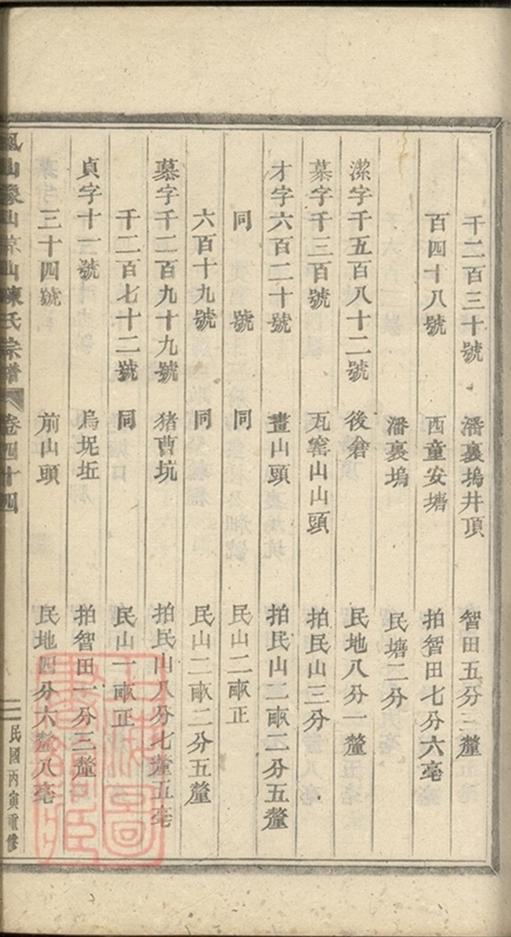 千二百三十號 潘裏塢井頂 智田五分三釐
百四十八號 西童安塘 拍智田七分六毫
潘裏塢 民塘二分
潔字千五百八十二號 後倉 民地八分一釐
慕字千三百號 瓦窰山山頭 拍民山三分
才字六百二十號 畫山頭 拍民山二畝二分五釐
同 號 同 民山二畝正
六百十九號 同 民山二畝二分五釐
慕字千二百九十九號 猪曹坑 拍民山八分七釐五毫
千二百七十二號 同 民山一畝正
貞字十一號 烏坭坵 拍智田一分三釐
三十四號 前山頭 民地四分六釐八毫
山 山 山陳氏宗譜 卷四十四 二 民國丙寅重修